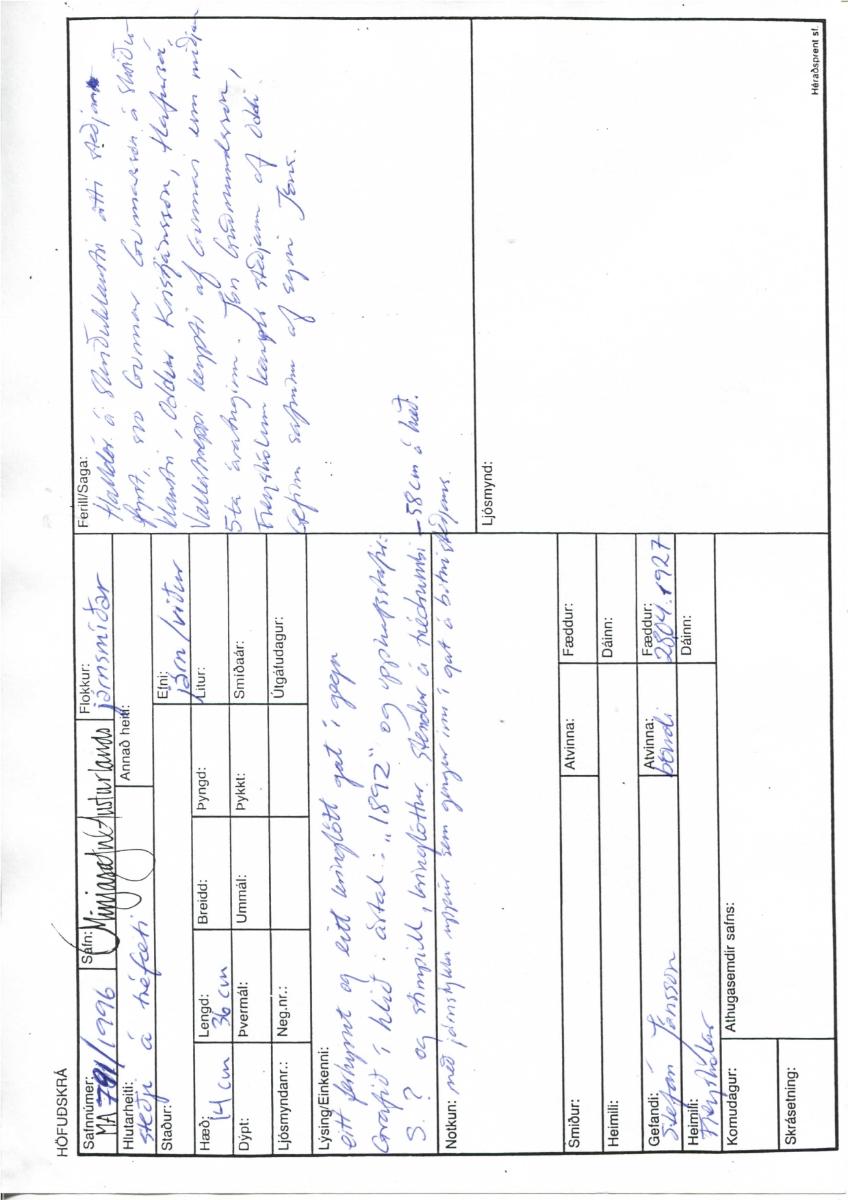 HÖFUÐSKRÁ
Safnnúmer: MA 791/1996
Safn: Minjasafn Austurlands
Flokkur: járnsmíðar
Hlutarheiti: steðji á tréfæti
Annað heiti:
Staður:
Efni: járn/viður
Hæð: 14 cm
Lengd: 36 cm
Breidd:
Þyngd:
Litur:
Dýpt:
Þvermál:
Ummál:
Þykkt:
Smíðaár:
Ljósmyndanr.:
Neg.nr.:
Útgátudagur:
Lýsing/Einkenni:
eitt ferhyrnt og eitt kringlótt gat í gegn
Grafið í hlið: ártal: "1892" og upphafsstafir:
S. ? og stimpill, kringlóttur. Stendur á trédrumbi – 58 cm á hæð.
Notkun: með járnstykki uppúr sem gengur inn í gat á botni steðjans.
Smiður:
Atvinna:
Fæddur:
Heimili:
Dáinn:
Gefandi: Stefán Jónsson
Atvinna: bóndi
Fæddur: 2804.1927
Heimili: Freyshólar
Dáinn:
Komudagur:
Athugasemdir safns:
Skrásetning:
Ferill/Saga:
Halldór á Skriðuklaustri átti steðjann
fyrst, svo Gunnar Gunnarsson á Skriðu-
klaustri, Oddur Kristjánsson, Hafursá,
Vallahreppi keypti af Gunnari um miðjan
5ta áratuginn. Jón Guðmundsson,
Freyshólum kaupir steðjann af Oddi.
Gefinn safninu af syni Jóns.
Ljósmynd:
Héraðsprent sf.